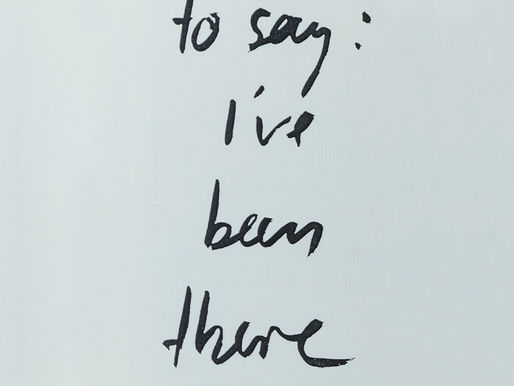 to say:
I've
been
there